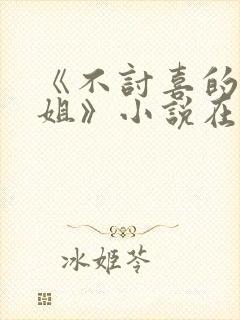 《不討喜的
姐》小說在
冰姬芩